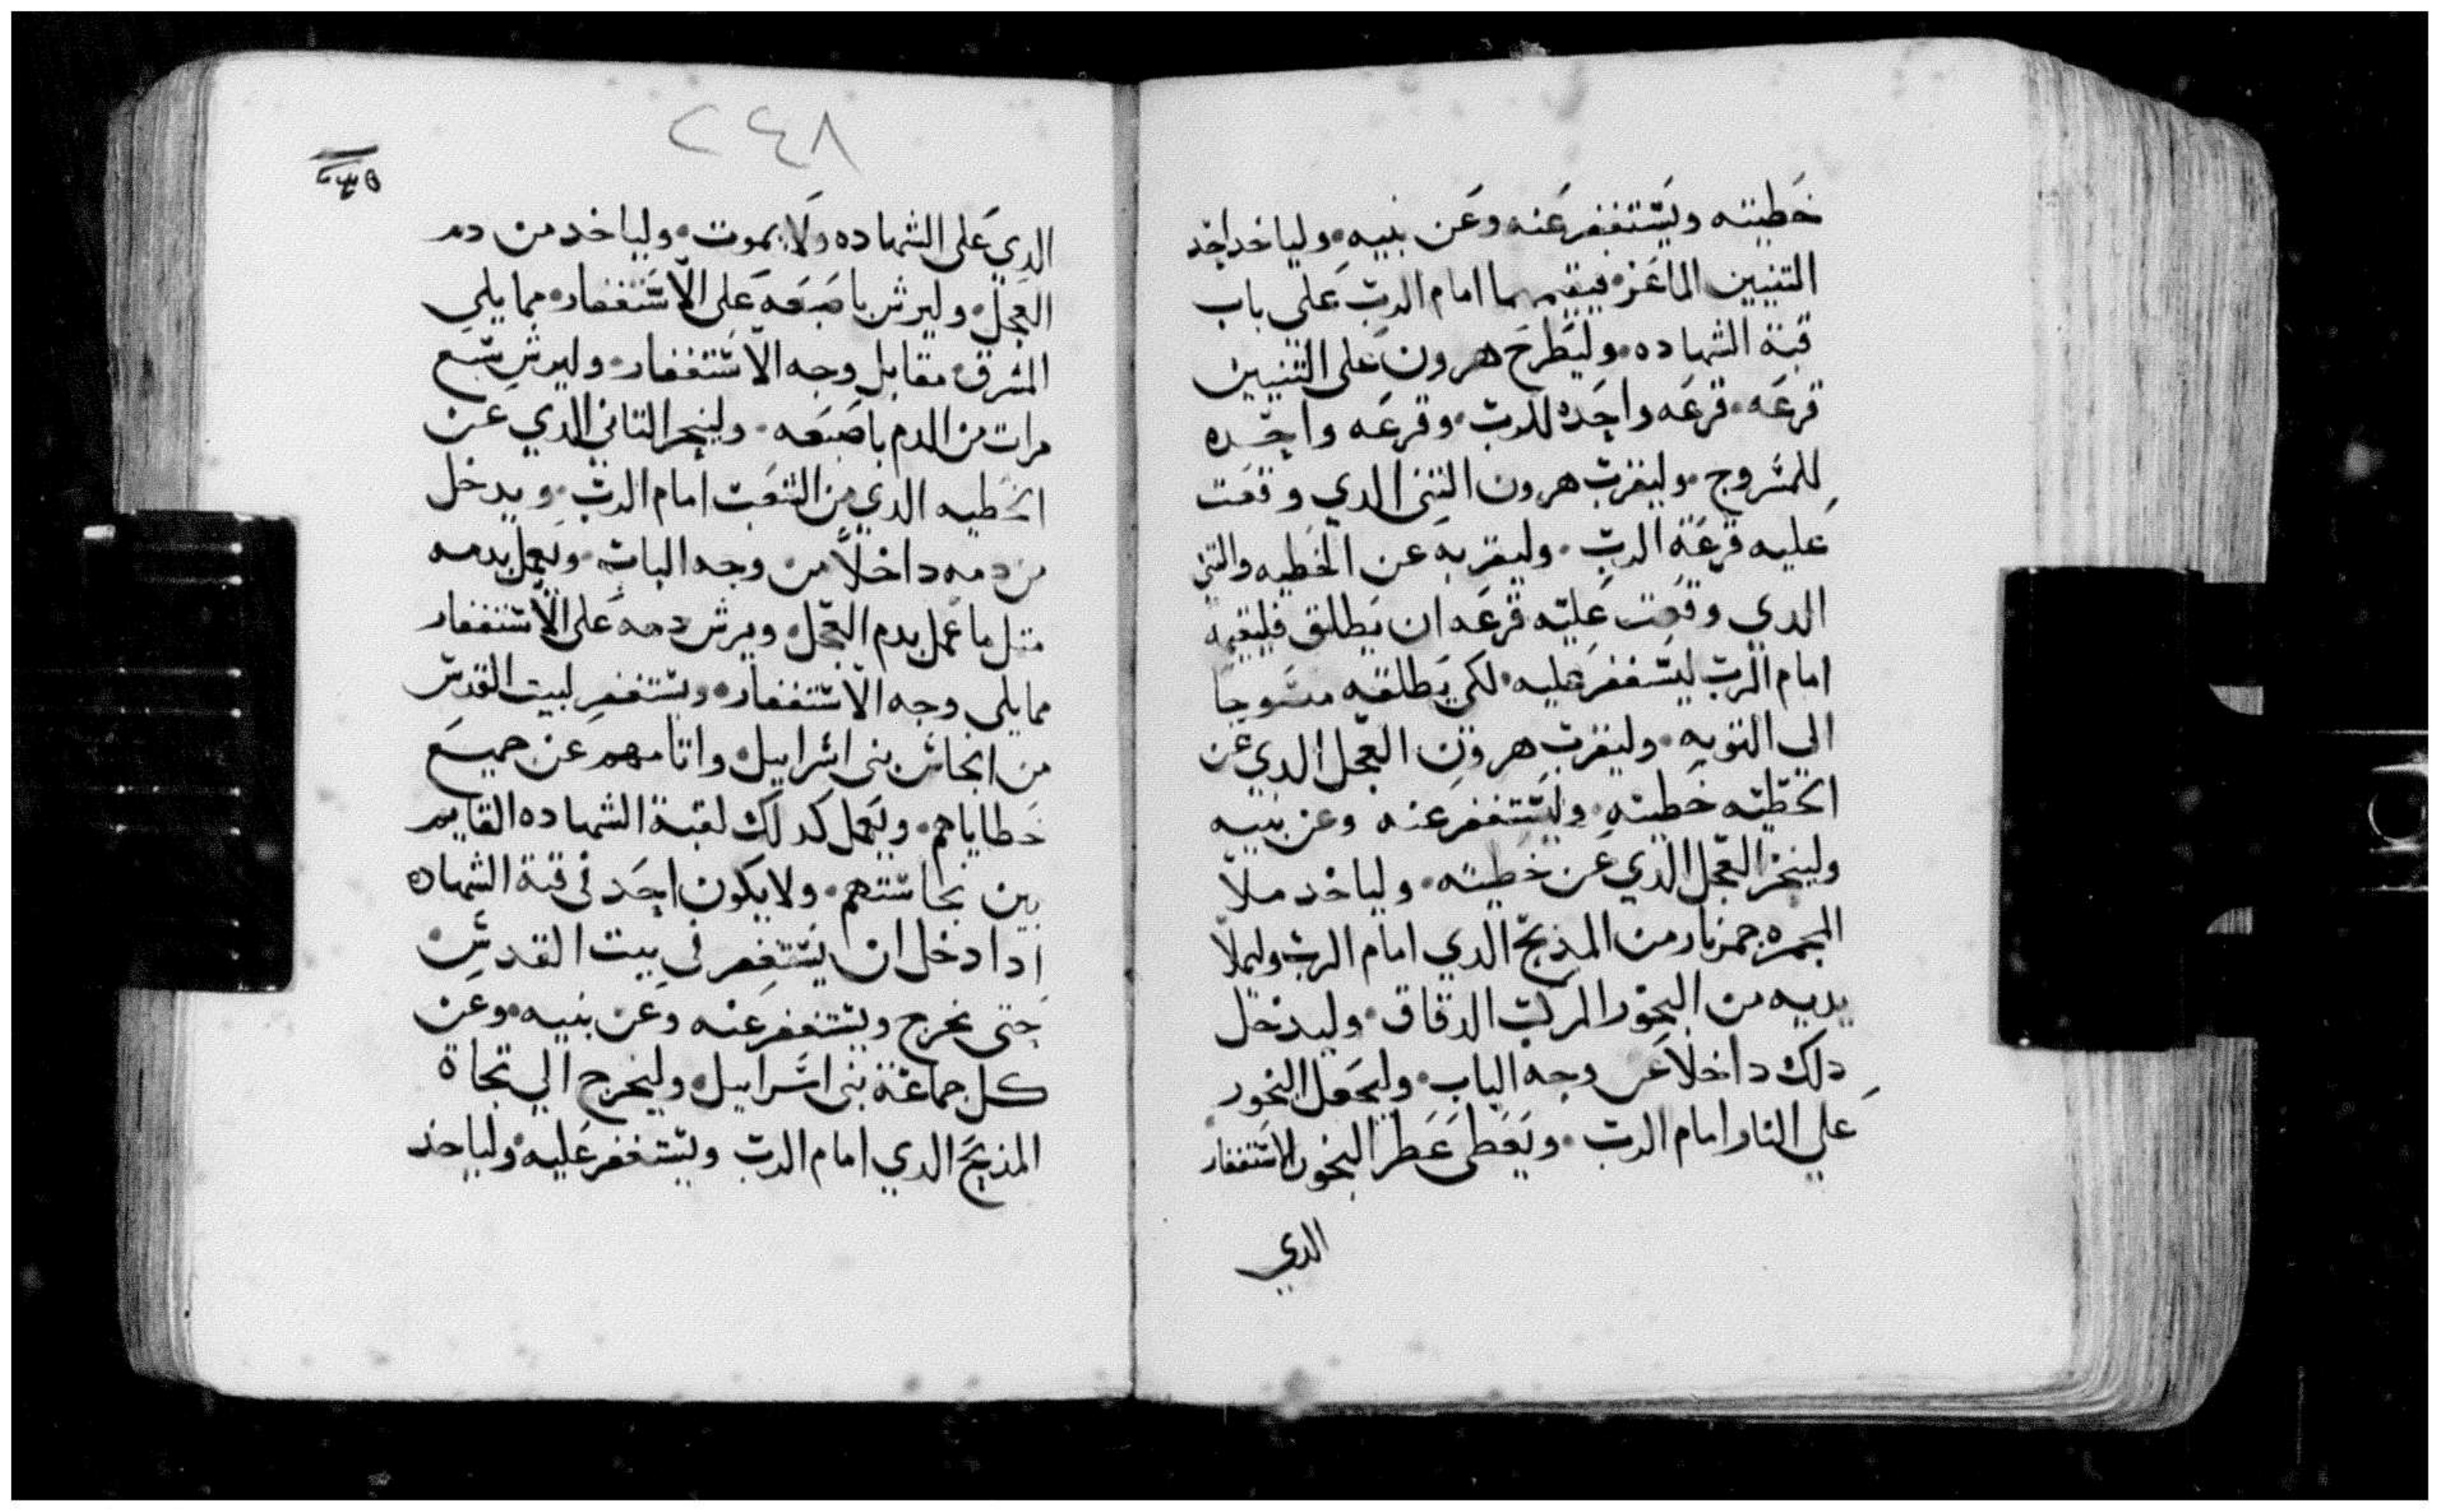 خطيته ويستغفر عنه وعن بنيه وليا خد احد
التنيين الماعز فيقيمهما امام الرب على باب
قبة الشهاده وليطرح هرون على التنيين
قرعه قرعه واحده للرب وقرعه واحده
للمسروج وليقرب هرون التنى الدي وقعت
عليه قرعة الرب وليقربه عن الخطيه والتنى
الدي وقعت عليه قرعه ان يطلق فليقيمه
امام الرب ليستغفر عليه لكي يطلقه مسوجا
الي التوبه وليقرب هرون العجل الدي عن
الخطيته خطيته وليستغفر عنه وعن بنيه
ولينحر العجل الدي عن خطيته ولياخد ملا
المجمره جمر نار من المذبح الدي امام الرب وليملا
يديه من البخور المركب الدقاق وليدخل
دلك داخلا عن وجه الباب وليجعل البخور
علي النار امام الرب ويغطى عطر البخور الاستغفار
الدي
٢٤٨
الدي على الشهاده ولا يموت ولياخد من دم
العجل وليرش باصبعه على الاستغفار مما يلي
المشرق مقابل وجه الاستغفار وليرش سبع
مرات من الدم باصبعه ولينحر التاني الدي عن
الخطيه الدي من الشعب امام الرب ويدخل
من دمه داخلا من وجه الباب ويعمل بدمه
متل ما عمل بدم العجل ويرش دمه على الاستغفار
مما يلى وجه الاستغفار ويستغفر لبيت القدس
من انجاس بنى اسراييل واتامهم عن جميع
خطاياهم ويعمل كدلك لقبة الشهاده القايم
بين نجاستهم ولا يكون احد في قبة الشهاده
ادا دخل ان يستغفر في بيت القدس
حتى يخرج ويستغفر عنه وعن بنيه وعن
كل جماعة بنى اسراييل وليخرج الي تجاة
المذبح الدي امام الرب ويستغفر عليه ولياخد